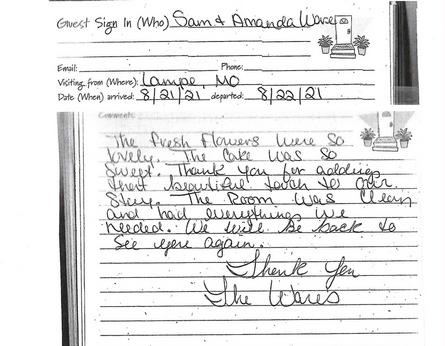 Guest Sign In (Who) Sam & Amanda Ware
Email: Phone:
Visiting from (Where): Lampe, MO
Date (When) arrived: 8/21/21 departed: 8/22/21
Comments:
The fresh flowers were so
lovely. The cake was so
sweet. Thank you for adding
that beautiful touch to our
stay. The Room was Clean
and had everything we
needed. We will be back to
see you again.
Thank you
The Wares